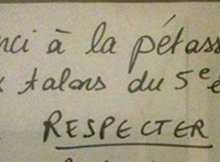 à la pétass
talons du 5e
RESPECTER